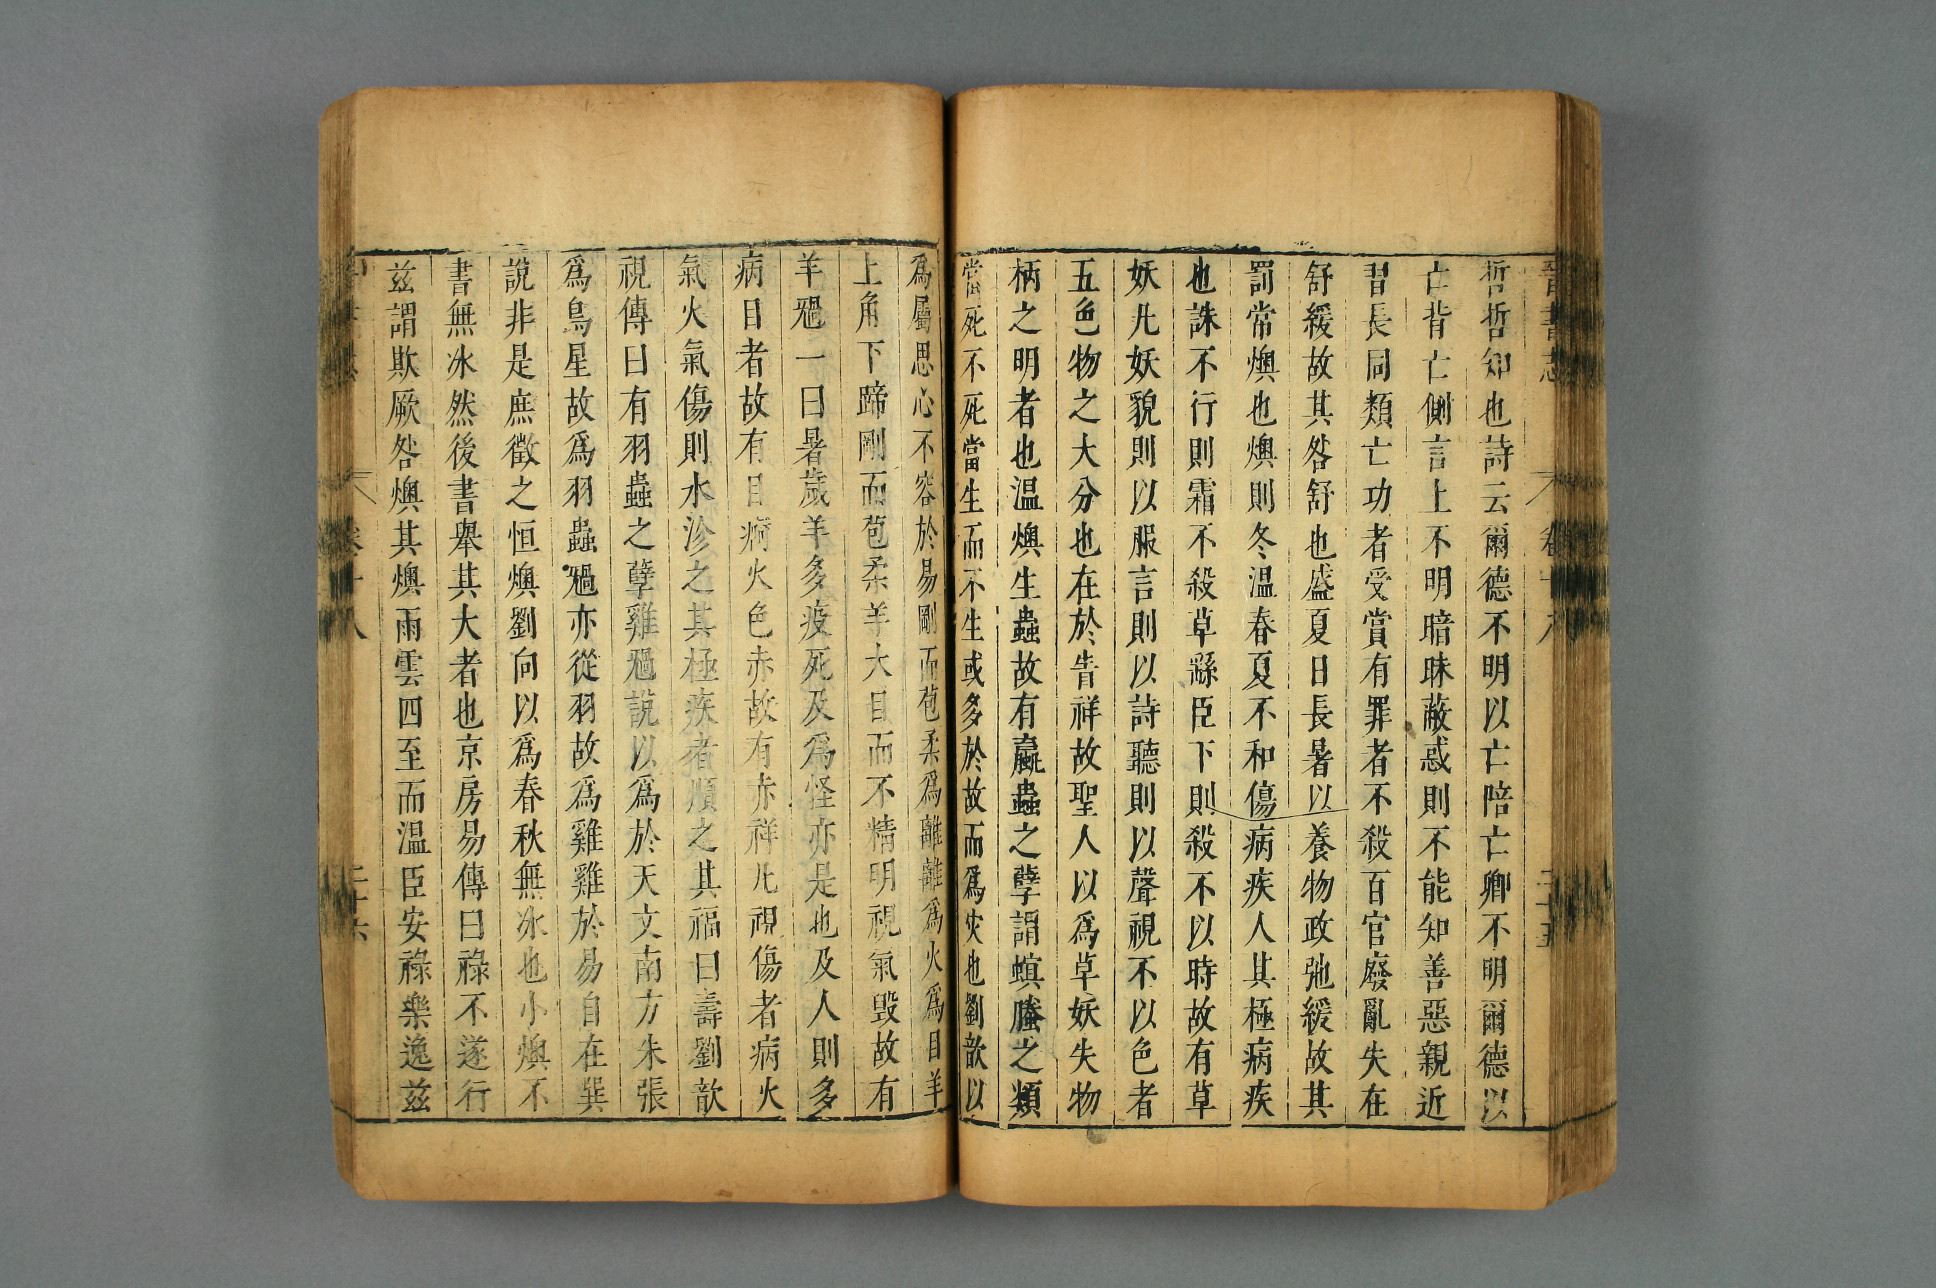 晉書志 卷十八 二十五
哲哲知也詩云爾德不明以亡陪亡卿不明爾德以
亡背亡側言上不明暗昧蔽惑則不能知善惡親近
習長同類亡功者受賞有罪者不殺百官廢亂失在
舒緩故其咎舒也盛夏日長暑以養物政弛緩故其
罰常燠也燠則冬溫春夏不和傷病疾人其極病疾
也誅不行則霜不殺草繇臣下則殺不以時故有草
妖凡妖貌則以服言則以詩聽則以聲視不以色者
五色物之大分也在於眚祥故聖人以爲草妖失物
柄之明者也溫燠生蟲故有蠃蟲之孽謂螟螣之類
當死不死當生而不生或多於故而爲災也劉歆以
爲屬思心不容於易剛而苞柔爲離離爲火爲目羊
上角下蹄剛而苞柔羊大目而不精明視氣毀故有
羊旤一曰暑歲羊多疫死及爲怪亦是也及人則多
病目者故有目痾火色赤故有赤祥凡視傷者病火
氣火氣傷則水沴之其極疾者順之其福曰壽劉歆
視傳曰有羽蟲之孽雞旤說以爲於天文南方朱張
爲鳥星故爲羽蟲旤亦從羽故爲雞雞於易自在巽
說非是庶徵之恒燠劉向以爲春秋無冰也小燠不
書無冰然後書舉其大者也京房易傳曰祿不遂行
茲謂欺厥咎燠其燠雨雲四至而溫臣安祿樂逸茲
卷十八 二十六